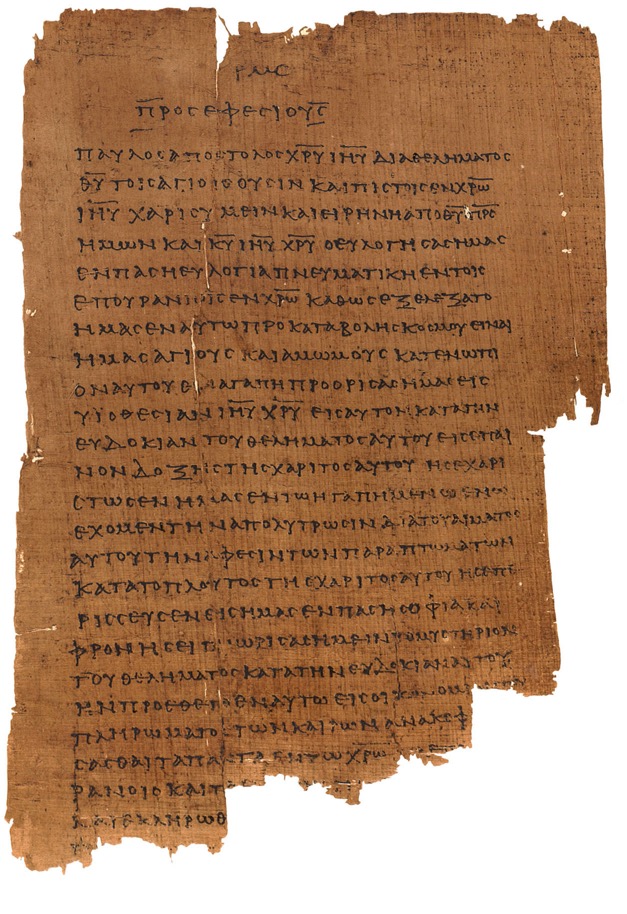 ΡΜϹ
ΠΡΟϹΕΦΕϹΙΟΥϹ
ΠΑΥΛΟϹΑΠΟϹΤΟΛΟϹΧΡΥ ΙΗΥ ΔΙΑΘΕΛΗΜΑΤΟϹ
ΘΥ ΤΟΙϹΑΓΙΟΙϹΟΥϹΙΝ ΚΑΙΠΙϹΤΟΙϹΕΝΧΡΩ
ΙΗΥ ΧΑΡΙϹΥΜΕΙΝΚΑΙΕΙΡΗΝΗΑΠΟΘΥΠΡϹ
ΗΜΩΝ ΚΑΙ ΚΥ ΙΗΥ ΧΡΥ ΟΕΥΛΟΓΗϹΑϹΗΜΑϹ
ΕΝΠΑϹΗΕΥΛΟΓΙΑΠΝΕΥΜΑΤΙΚΗΕΝΤΟΙϹ
ΕΠΟΥΡΑΝΙΟΙϹΕΝΧΡΩ ΚΑΘΩϹΕΞΕΛΕΞΑΤΟ
ΗΜΑϹΕΝΑΥΤΩΠΡΟΚΑΤΑΒΟΛΗϹΚΟϹΜΟΥΕΙΝΑΙ
ΗΜΑϹΑΓΙΟΥϹ ΚΑΙΑΜΩΜΟΥϹ ΚΑΤΕΝΩΠΙ
ΟΝΑΥΤΟΥΕΝΑΓΑΠΗΠΡΟΟΡΙϹΑϹΗΜΑϹΕΙϹ
ΥΙΟΘΕϹΙΑΝ ΙΗΥ ΧΡΥ ΕΙϹΑΥΤΟΝΚΑΤΑΤΗΝ
ΕΥΔΟΚΙΑΝ ΤΟΥΘΕΛΗΜΑΤΟϹΑΥΤΟΥΕΙϹΕΠΑΙ
ΝΟΝ ΔΟΞΗϹΤΗϹΧΑΡΙΤΟϹΑΥΤΟΥ ΗϹΕΧΑΡΙ
ϹΤΩϹΕΝ ΗΜΑϹΕΝΤΩΗΓΑΠΗΜΕΝΩ ΕΝΩ
ΕΧΟΜΕΝΤΗΝΑΠΟΛΥΤΡΩϹΙΝ ΔΙΑΤΟΥΑΙΜΑΤΟϹ
ΑΥΤΟΥΤΗΝΑΦΕϹΙΝΤΩΝΠΑΡΑΠΤΩΜΑΤΩΝ
ΚΑΤΑΤΟΠΛΟΥΤΟϹΤΗϹΧΑΡΙΤΟϹΑΥΤΟΥ ΗϹΕΠΕ
ΡΙϹϹΕΥϹΕΝΕΙϹΗΜΑϹ ΕΝΠΑϹΗϹΟΦΙΑΚΑΙ
ΦΡΟΝΗϹΕΙ ΓΝΩΡΙϹΑϹΗΜΕΙΝΤΟΜΥϹΤΗΡΙΟΝ
ΤΟΥΘΕΛΗΜΑΤΟϹΚΑΤΑΤΗΝΕΥΔΟΚΙΑΝΑΥΤΟΥ
ΗΝΠΡΟΕΘΕΤΟΕΝΑΥΤΩ ΕΙϹΟΙΚΟΝΟΜ
ΠΛΗΡΩΜΑΤΟϹΤΩΝΚΑΙΡΩΝΑΝΑΚΕΦ
ϹΑϹΘΑΙΤΑΠΑΝΤΑΕΝΤΩΧΡΩ
ΡΑΝΟΙϹ ΚΑΙΤ
ΕΚΛΗΡΩΘ